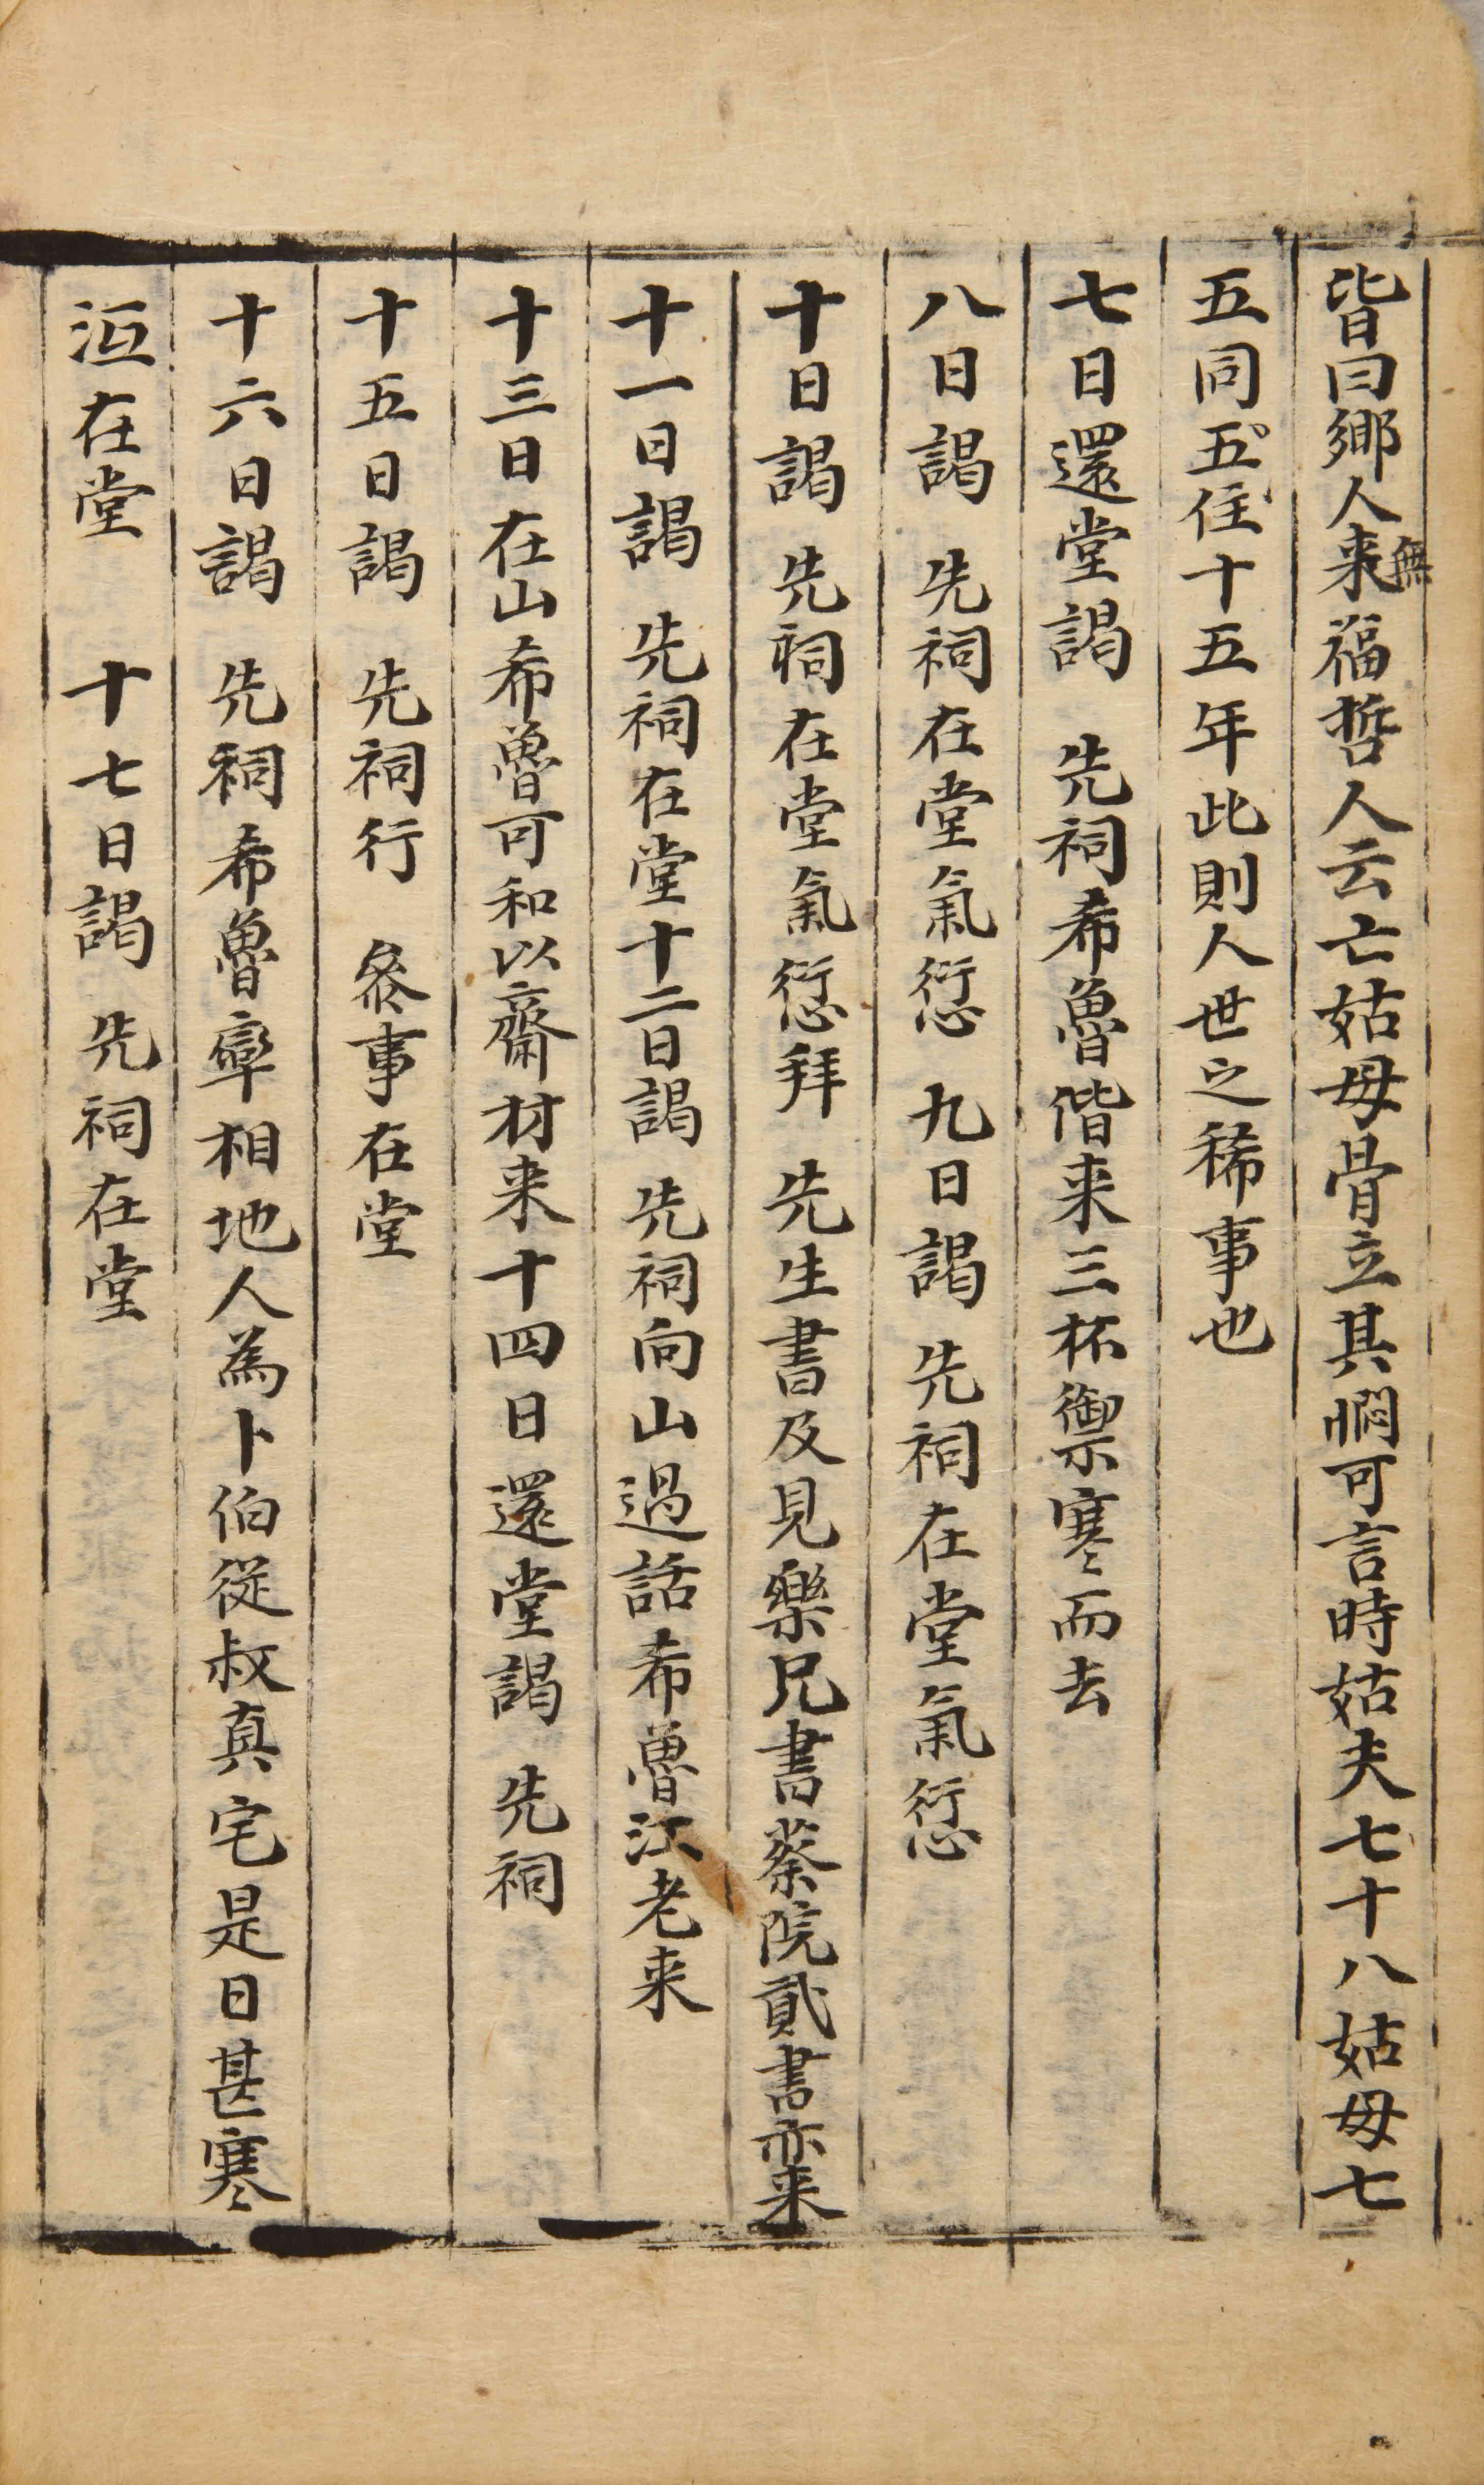 皆曰鄕人来無福哲人云亡姑母骨立其悶可言時姑夫七十八姑母七
五同五住十五年此則人世之稀事也
七日還堂謁 先祠希魯偕来三杯禦寒而去
八日謁 先祠在堂氣愆 九日謁 先祠在堂氣愆
十日謁 先祠在堂氣愆拜 先生書及見樂兄書蔡院貳書亦来
十一日謁 先祠在堂十二日謁 先祠向山過話希魯江老来
十三日在山希魯可和以齋材来十四日還堂謁 先祠
十五日謁 先祠行 叅事在堂
十六日謁 先祠希魯率相地人為卜伯從叔真宅是日甚寒
沍在堂 十七日謁 先祠在堂